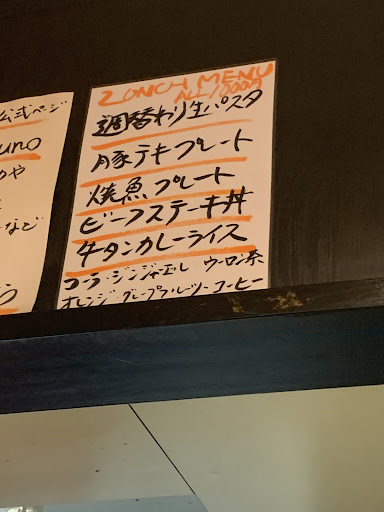 公式ページ
uno
や
など
LUNCH MENU
ALL 1000円
週替わり生パスタ
豚テキプレート
焼魚プレート
ビーフステーキ丼
牛タンカレーライス
コーラ・ジンジャエール ウーロン茶
オレンジ・グレープフルーツ・コーヒー